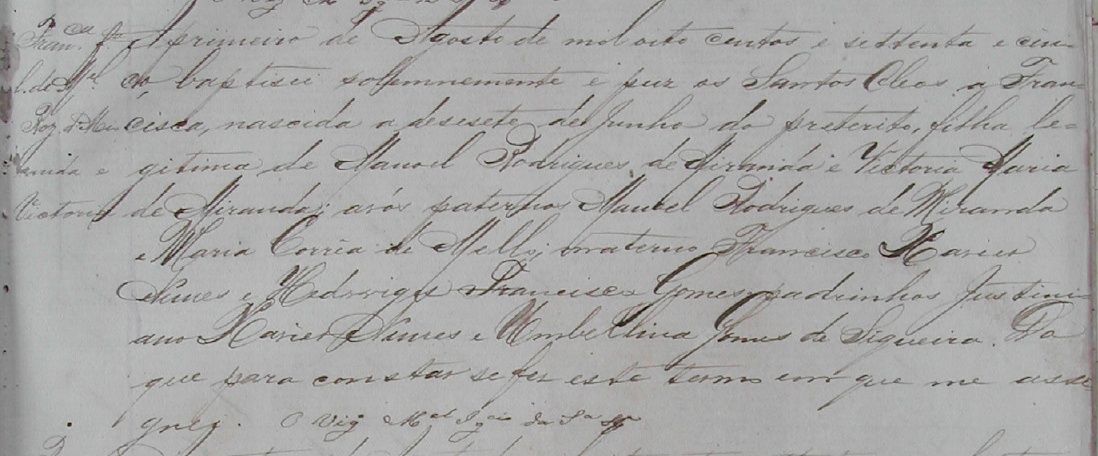 Fran.ca f.a A primeiro de Agosto de mil oito centos e settenta e cin-
l. de M.el co baptisei solemnemente e puz os Santos Oleos a Fran-
Roz. de Mi- cisca, nascida a desesete de Junho do preterito, filha le-
randa e gitima de Manoel Rodrigues de Miranda e Victoria Maria
Victoria de Miranda; avós paternos Manoel Rodrigues de Miranda
e Maria Corrêa de Mello; materno Francisco Xavier
Nunes e Hedwiges Francisca Gomes; padrinhos Justini-
ano Xavier Nunes e Umbellina Gomes de Siqueira. Do
que para constar se fez este termo em que me assi-
gnei. O Vig M.el Ig.cio da S.a